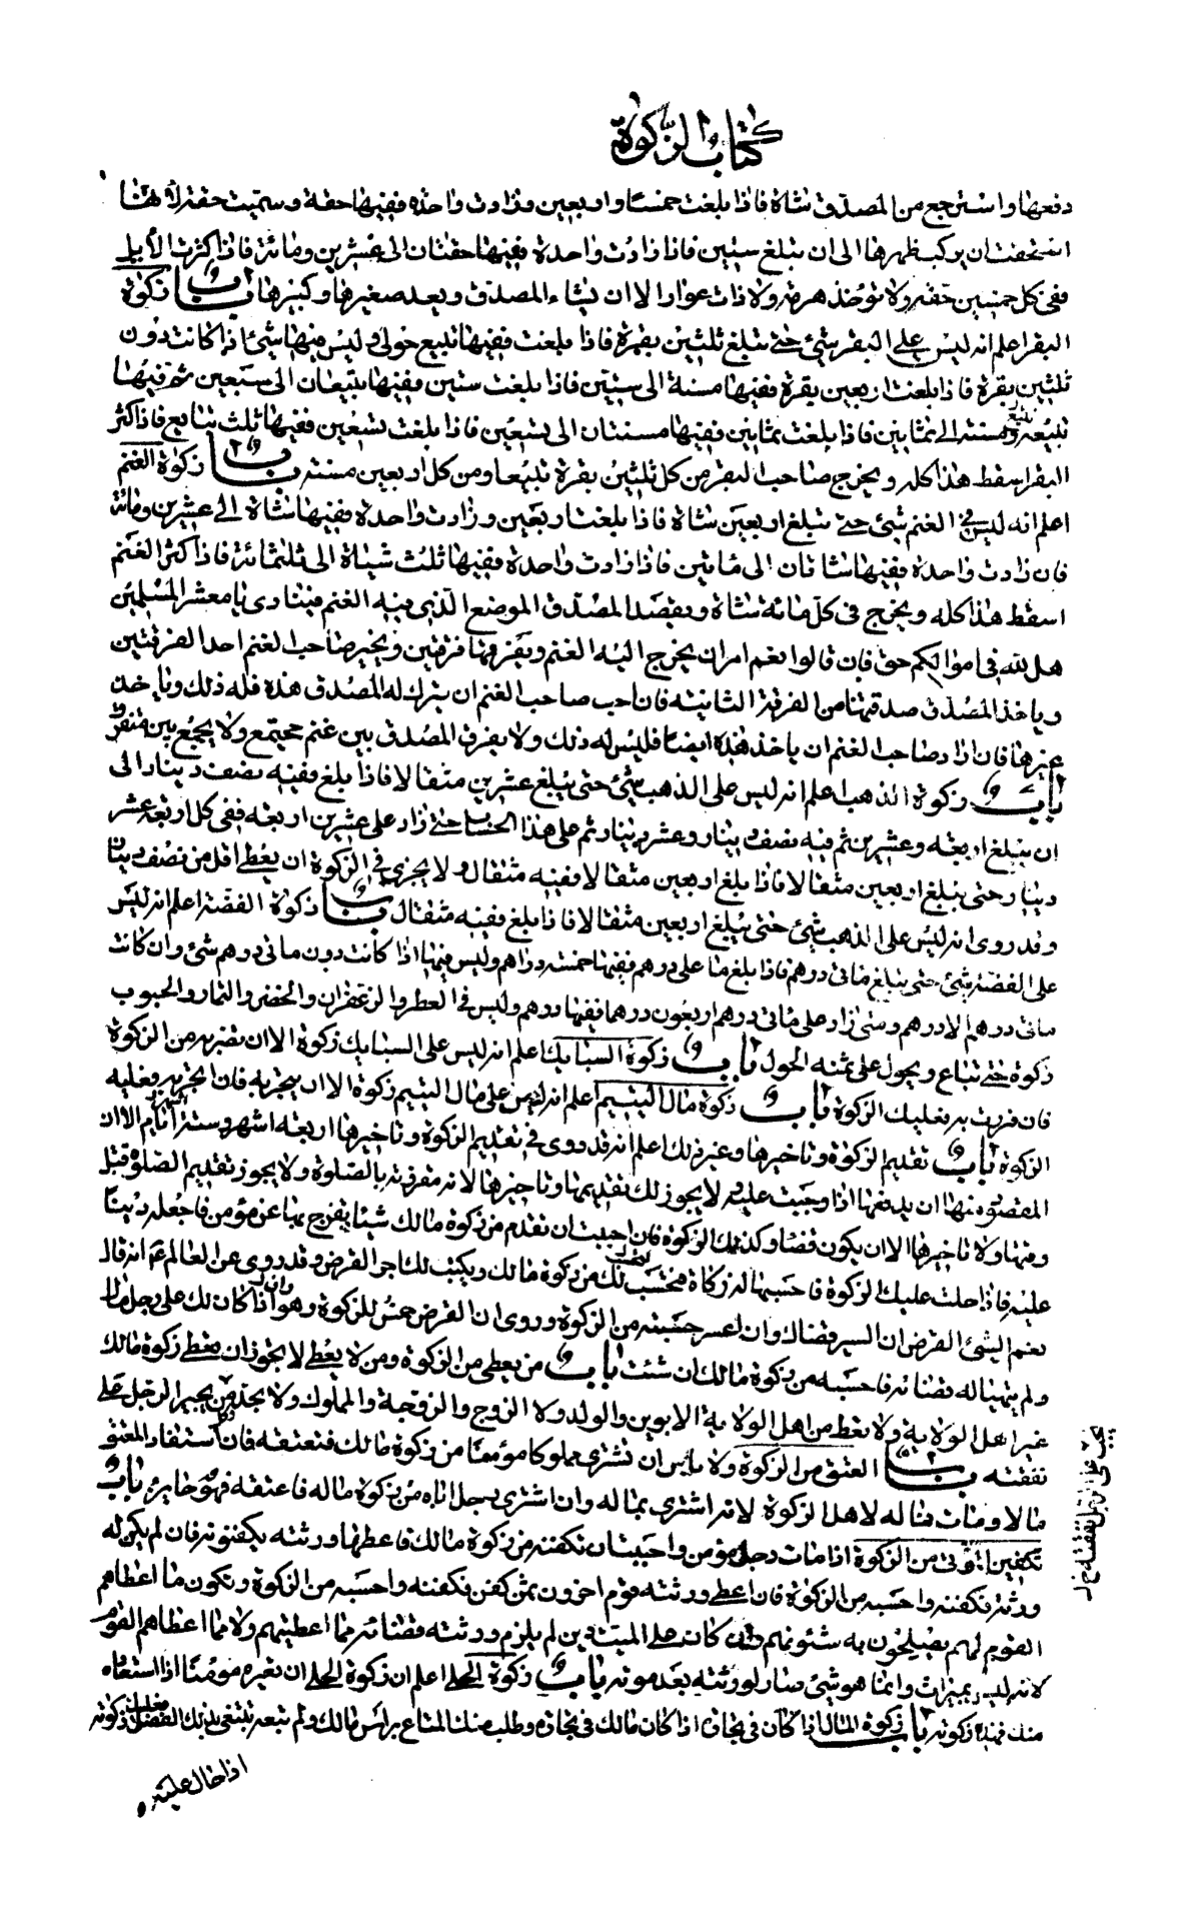 كتاب الزكوة
دفعها واسترجع من المصدق شاة فاذا بلغت خمسا واربعين وزادت واحدة ففيها حقة وسميت حقة لانها
استحقت ان يركب ظهرها الى ان تبلغ ستين فاذا زادت واحدة ففيها حقتان الى عشرين ومائة فاذا كثرت الابل
ففي كل خمسين حقة ولا تؤخذ هرمة ولا ذات عوار الا ان يشاء المصدق ويعد صغيرها وكبيرها باب زكوة
البقر اعلم انه ليس على البقر شئ حتى تبلغ ثلثين بقرة فاذا بلغت ففيها تبيع حولى وليس فيها شئ اذا كانت دون
ثلثين بقرة فاذا بلغت اربعين بقرة ففيها مسنة الى ستين فاذا بلغت ستين ففيها تبيعان الى سبعين ثم فيها
تبيعة ومسنة الى ثمانين فاذا بلغت ثمانين ففيها مسنتان الى تسعين فاذا بلغت تسعين ففيها ثلث تبايع فاذا كثر
البقر اسقط هذا كله ويخرج صاحب البقر من كل ثلثين بقرة تبيعا ومن كل اربعين مسنة باب زكوة الغنم
اعلم انه ليس فى الغنم شئ حتى تبلغ اربعين شاة فاذا بلغت اربعين وزادت واحدة ففيها شاة الى عشرين ومائة
فان زادت واحدة ففيها شاتان الى مائتين فاذا زادت واحدة ففيها ثلث شياة الى ثلثمائة فاذا كثر الغنم
اسقط هذا كله ويخرج فى كل مائة شاة ويقصد المصدق الموضع الذى فيه الغنم فينادى يا معشر المسلمين
هل لله فى اموالكم حق فان قالوا نعم امر ان يخرج اليه الغنم ويفرقها فرقتين ويخير صاحب الغنم احدا الفرقتين
وياخذ المصدق صدقتها من الفرقة الثانية فان احب صاحب الغنم ان يترك له المصدق هذه فله ذلك وياخذ
غيرها فان اراد صاحب الغنم ان ياخذ هذه ايضا فليس له ذلك ولا يفرق المصدق بين غنم مجتمع ولا يجمع بين متفرق
باب زكوة الذهب اعلم انه ليس على الذهب شئ حتى يبلغ عشرين مثقالا فاذا بلغ ففيه نصف دينار الى
ان يبلغ اربعة وعشرين ثم فيه نصف دينار وعشر دينار ثم على هذا الحساب حتى زاد على عشرين اربعة ففى كل اربعة عشر
دينار حتى يبلغ اربعين مثقالا فاذا بلغ اربعين مثقالا ففيه مثقال ولا يجزى فى الزكوة ان يعطى اقل من نصف دينار
وقد روى انه ليس على الذهب شئ حتى يبلغ اربعين مثقالا فاذا بلغ ففيه مثقال باب زكوة الفضة اعلم انه ليس
على الفضة شئ حتى يبلغ مائى درهم فاذا بلغ مائى درهم ففيها خمسة دراهم وليس فيها اذا كانت دون مائى درهم شئ وان كانت
مائى درهم الا درهم ومتى زاد على مائى درهم اربعون درهما ففيها درهم وليس فى العطر والزعفران والخضر والثمار والحبوب
زكوة حتى تباع ويحول على ثمنه الحول باب زكوة السبايك اعلم انه ليس على السبايك زكوة الا ان تفر به من الزكوة
فان فررت به فعليك الزكوة باب زكوة مال اليتيم اعلم انه ليس على مال اليتيم زكوة الا ان يتجر به فان اتجر به فعليه
الزكوة باب تقديم الزكوة وتاخيرها وغير ذلك اعلم انه قد روى فى تقديم الزكوة وتاخيرها اربعة اشهر وستة اشهر الا ان
المقصود منها ان يدفعها اذا وجبت عليه ولا يجوز لك تقديمها وتاخيرها لانه مقرونة بالصلوة ولا يجوز تقديم الصلوة قبل
وقتها ولا تاخيرها الا ان يكون قضاء وكذلك الزكوة فان احببت ان تقدم من زكوة مالك شيئا يفرج بها عن مؤمن فاجعله دينا
عليه فاذا حلت عليك الزكوة فاحسبها له زكاة فتحسب لك من زكوة مالك ويكتب لك اجر القرض وقد روى عن العالم ع انه قال
نعم الشئ القرض ان ايسر قضاك وان اعسر حسبته من الزكوة وروى ان القرض حمى للزكوة وهو اذا كان لك على رجل مال
ولم يتهيأ له قضائه فاحسبه من زكوة مالك ان شئت باب من يعطى من الزكوة ومن لا يعطى لا يجوز ان يعطى زكوة مالك
غير اهل الولاية ولا يعط من اهل الولاية الابوين والولد ولا الزوج والزوجة والمملوك ولا الجد وكل من يجبر الرجل على
نفقته باب العتق من الزكوة ولا باس ان تشترى مملوكا مؤمنا من زكوة مالك فتعتقه فان استفاد المعتق
مالا ومات فماله لاهل الزكوة لانه اشترى بماله وان اشترى رجل اباه من زكوة ماله فاعتقه فهو جايز باب
تكفين الموتى من الزكوة اذا مات رجل مؤمن واحببت ان تكفنه من زكوة مالك فاعطها ورثته يكفنونه فان لم يكن له
ورثة فكفنه واحسبه من الزكوة فان اعطى ورثته قوم اخرون ثمن كفن فكفنه واحسبه من الزكوة ويكون ما اعطاهم
القوم لهم يصلحون به شئونهم وان كان على الميت دين لم يلزم ورثته قضائه مما اعطيتهم ولا مما اعطاهم القوم
لانه ليس بميراث وانما هو شئ صار لورثته بعد موته باب زكوة الحلى اعلم ان زكوة الحلى ان تعيره مؤمنا اذا استعاره
منك فهذه زكوته باب زكوة المال اذا كان فى تجارة اذا كان مالك فى تجارة وطلب منك المتاع براس مالك ولم تبعه تبتغى بذلك الفضل فعليك زكوته
اذا حال عليه
يجب على الرجل نفقته خ ل